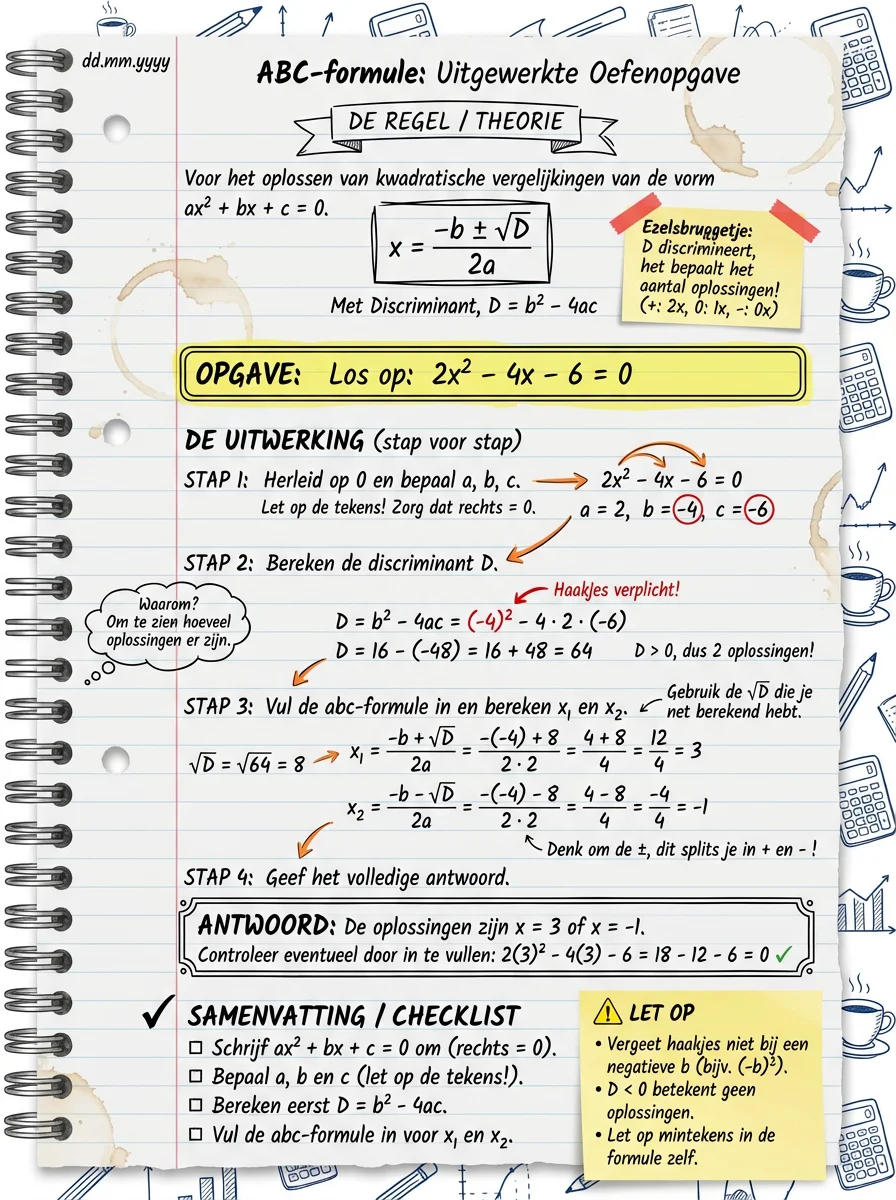 dd.mm.yyyy
ABC-formule: Uitgewerkte Oefenopgave
DE REGEL / THEORIE
Voor het oplossen van kwadratische vergelijkingen van de vorm
ax² + bx + c = 0.
x = (-b ± √D) / 2a
Met Discriminant, D = b² - 4ac
Ezelsbruggetje:
D discrimineert,
het bepaalt het
aantal oplossingen!
(+: 2x, 0: 1x, -: 0x)
OPGAVE: Los op: 2x² - 4x - 6 = 0
DE UITWERKING (stap voor stap)
STAP 1: Herleid op 0 en bepaal a, b, c. → 2x² - 4x - 6 = 0
Let op de tekens! Zorg dat rechts = 0. a = 2, b = -4, c = -6
STAP 2: Bereken de discriminant D.
Haakjes verplicht!
Waarom?
Om te zien hoeveel
oplossingen er zijn.
D = b² - 4ac = (-4)² - 4 · 2 · (-6)
D = 16 - (-48) = 16 + 48 = 64 D > 0, dus 2 oplossingen!
STAP 3: Vul de abc-formule in en bereken x₁ en x₂.
Gebruik de √D die je
net berekend hebt.
√D = √64 = 8 → x₁ = (-b + √D) / 2a = (-(-4) + 8) / (2 · 2) = (4 + 8) / 4 = 12 / 4 = 3
x₂ = (-b - √D) / 2a = (-(-4) - 8) / (2 · 2) = (4 - 8) / 4 = -4 / 4 = -1
Denk om de ±, dit splits je in + en - !
STAP 4: Geef het volledige antwoord.
ANTWOORD: De oplossingen zijn x = 3 of x = -1.
Controleer eventueel door in te vullen: 2(3)² - 4(3) - 6 = 18 - 12 - 6 = 0 ✓
✓ SAMENVATTING / CHECKLIST
☐ Schrijf ax² + bx + c = 0 om (rechts = 0).
☐ Bepaal a, b en c (let op de tekens!).
☐ Bereken eerst D = b² - 4ac.
☐ Vul de abc-formule in voor x₁ en x₂.
⚠ LET OP
• Vergeet haakjes niet bij een
negatieve b (bijv. (-b)²).
• D < 0 betekent geen
oplossingen.
• Let op mintekens in de
formule zelf.